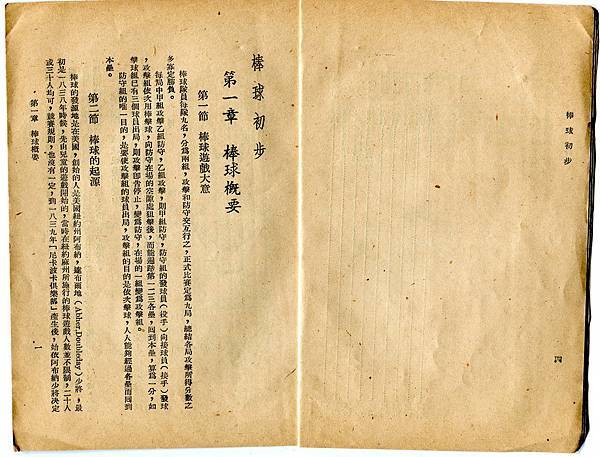 棒球初步
四
棒球初步
第一章 棒球概要
第一節 棒球遊戲大意
棒球隊員每隊九名,分為兩組,攻擊和防守交互行之,正式比賽定為九局,總結各局攻擊所得分數之
多寡定勝負。
每局中甲組攻擊乙組防守,乙組攻擊,則甲組防守,防守組的發球員(投手)向接球員(接手)發球
,攻擊組依次用棒擊球,向防守在場的空隙處狙擊後,而能遍踏第一二三各壘,回到本壘,算為一分,如
擊球組已有三個球員出局,則攻擊即告停止,變為防守,在場的一組變為攻擊組。
防守組的唯一目的,是要使攻擊組的球員出局,攻擊組的目的是依次擊球,人人能夠經過各壘而回到
本壘。
第二節 棒球的起源
棒球的發源地是在美國,創始的人是美國紐約州阿布納,達布兩地(Abber,Doubleday)少將,最
初是一八三八年時候,先由兒童的遊戲開始的,當時在紐約麻州所施行的棒球遊戲人數並不限制,二十人
或三十人均可,競賽規則,也沒有一定,到一八三九年「尼卡波卡俱樂部」產生後,始依阿布納少將決定
第一章 棒球概要
一